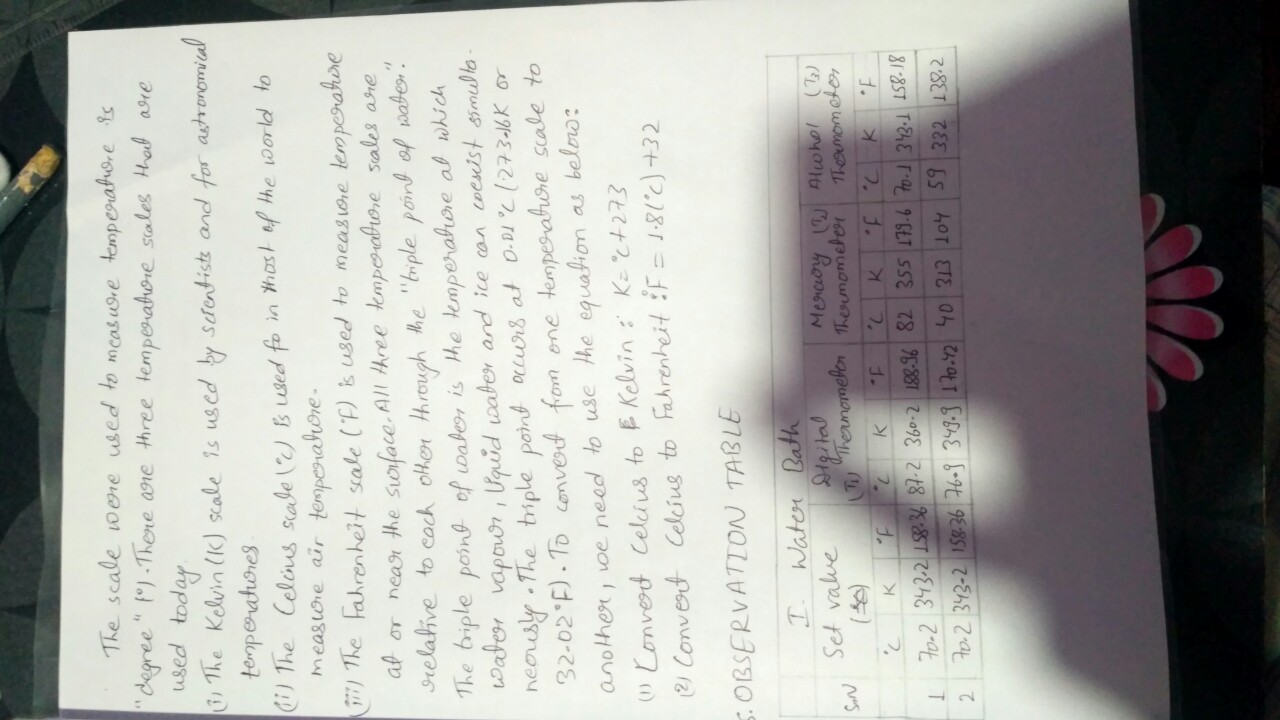 The scale were used to measure temperature is
"degree" (°). There are three temperature scales that are
used today.
(i) The Kelvin (K) scale is used by scientists and for astronomical
temperatures.
(ii) The Celcius scale (°c) is used fo in most of the world to
measure air temperature.
(iii) The Fahrenheit scale (°F) is used to measure temperature
at or near the surface. All three temperature scales are
relative to each other through the "triple point of water".
The triple point of water is the temperature at which
water vapour, liquid water and ice can coexist simulta-
neously. The triple point occurs at 0.01 °c (273.16K or
32.02°F). To convert from one temperature scale to
another, we need to use the equation as below:
(1) Convert Celcius to Kelvin : K = °c + 273
(2) Convert Celcius to Fahrenheit : °F = 1.8(°c) + 32
5. OBSERVATION TABLE
I. Water Bath
SrN Set value Digital (T1) Thermometer Mercury (T2) Thermometer Alcohol (T3) Thermometer
°c K °F °c K °F °c K °F °c K °F
1 70.2 343.2 158.36 87.2 360.2 188.96 82 355 179.6 70.1 343.1 158.18
2 70.2 343.2 158.36 76.9 349.9 170.42 40 313 104 59 332 138.2